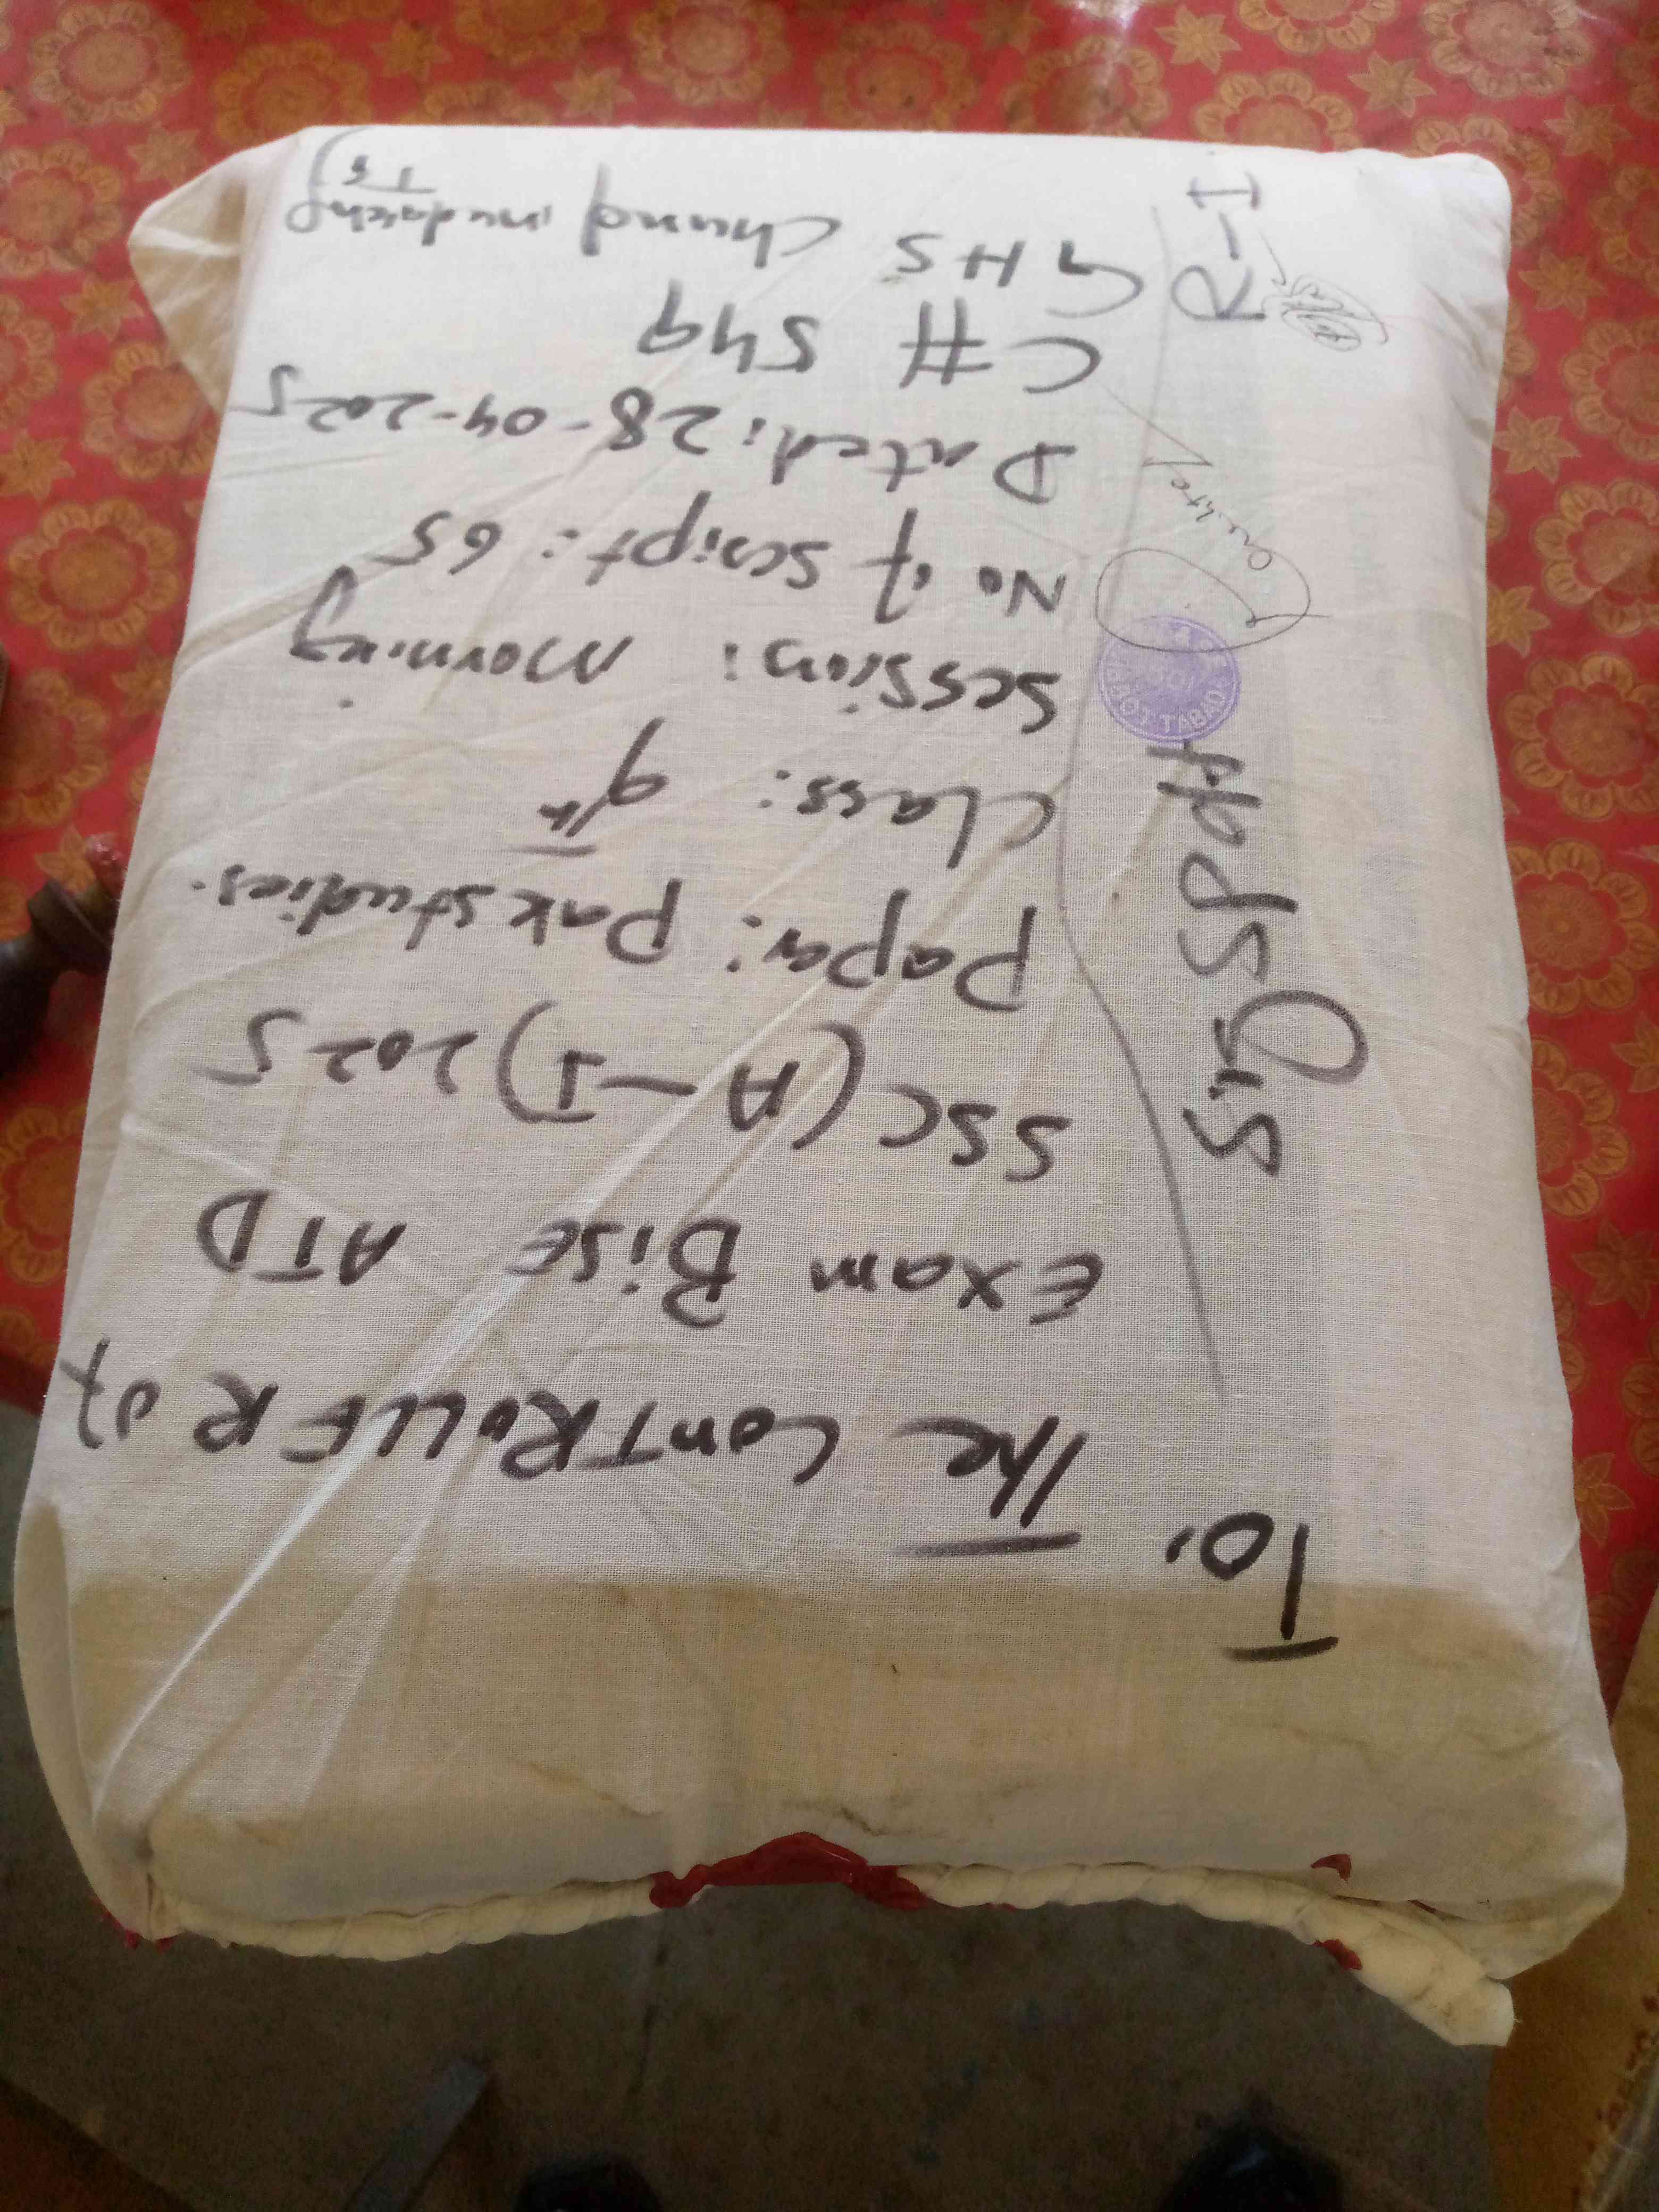 To,
The CONTROLLER of
Exam Bise ATD
SSC (A-I) 2025
Paper: Pak studies.
Class: 9th
Session: Morning
No of script: 65
Dated: 28-04-2025
C # 549
GHS Chund
R-I
ABBOTTABAD